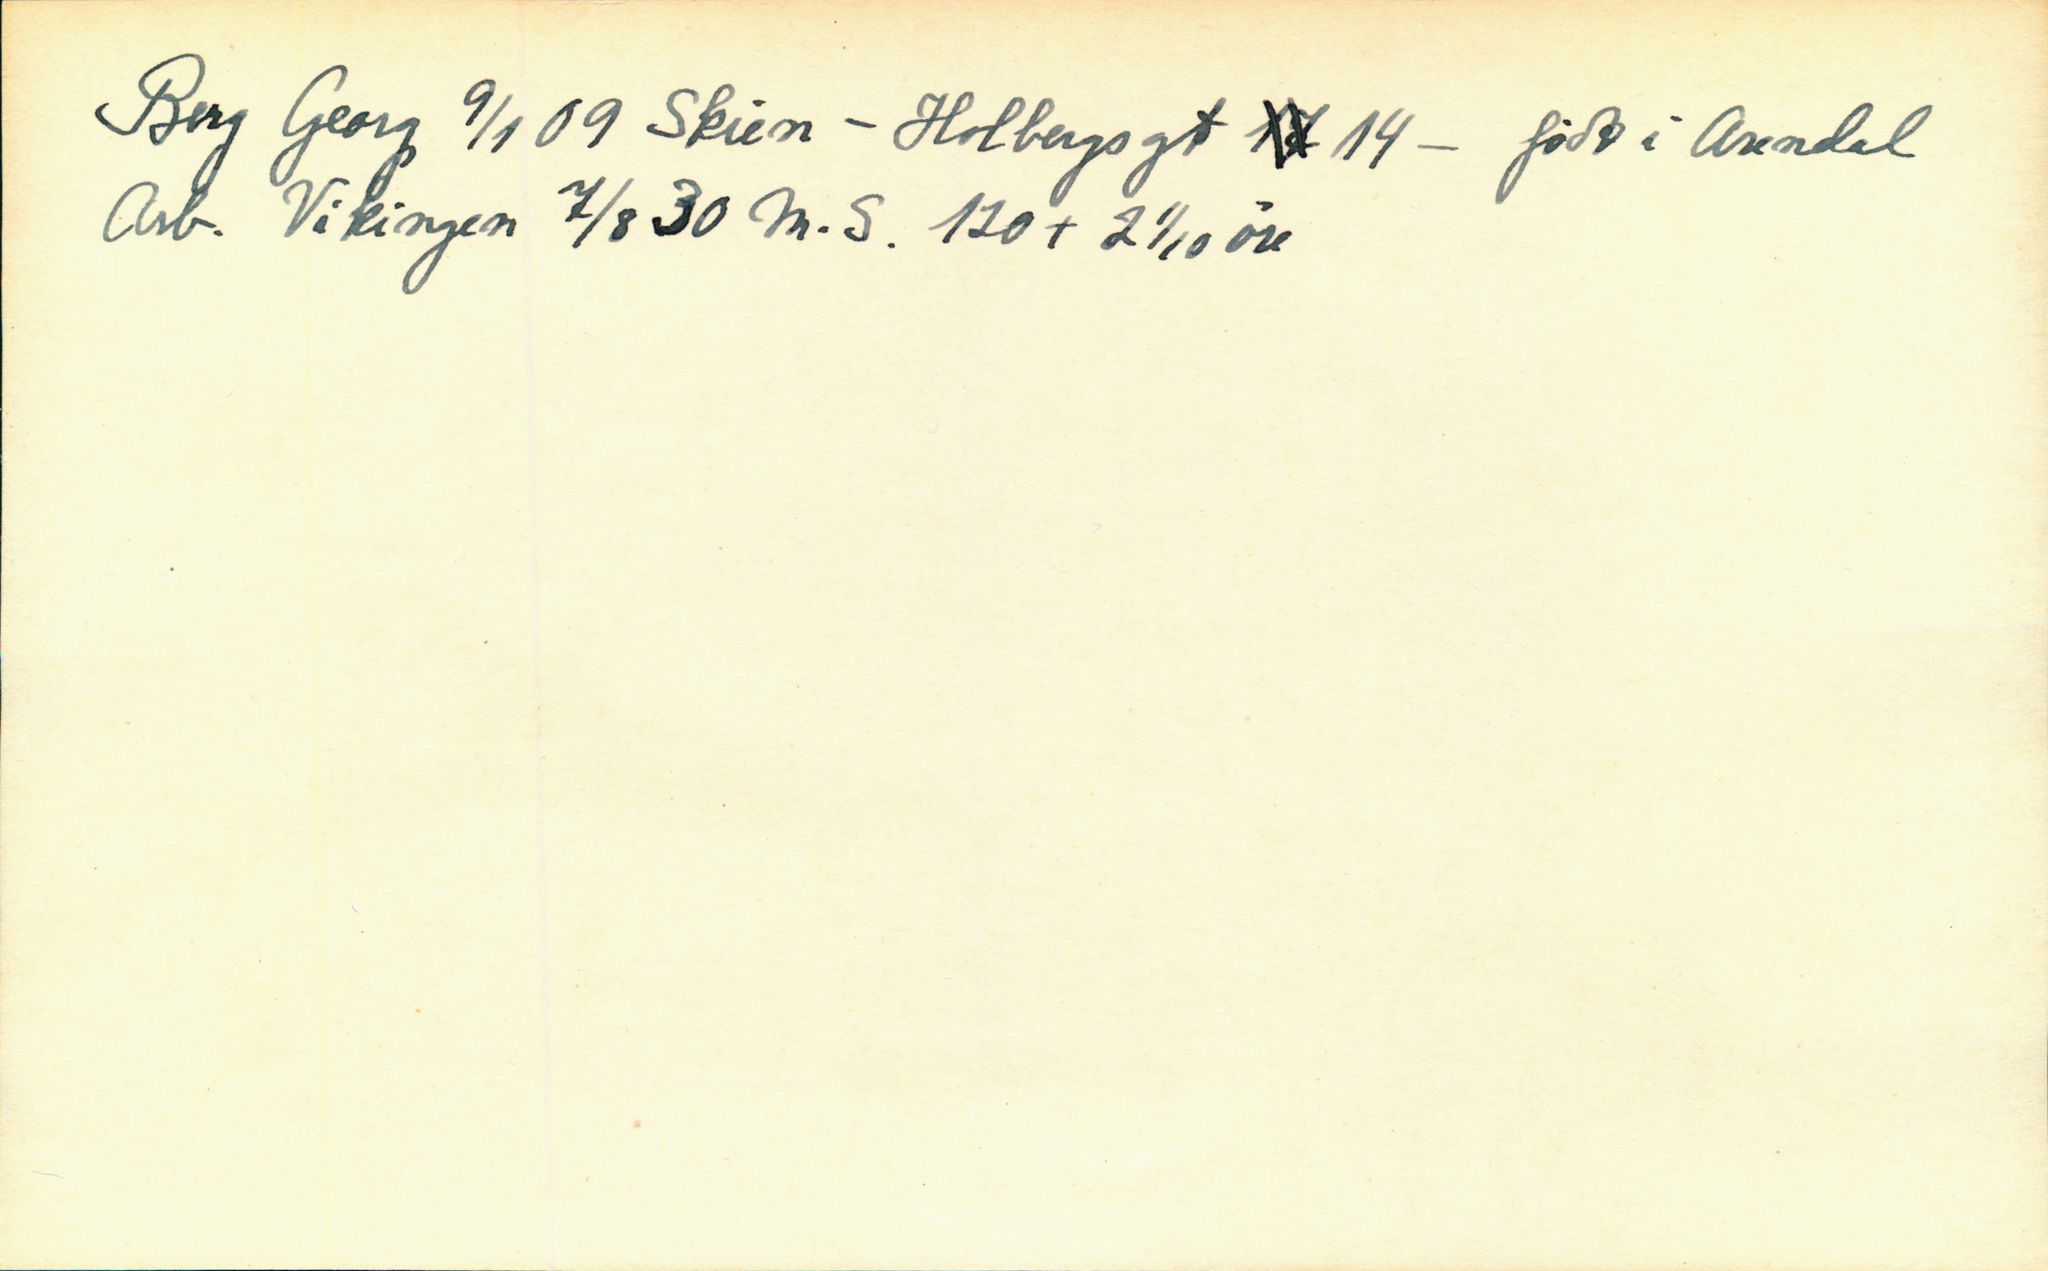 Berg Georg 9/1 09 Skien - Holbergsgt 14 - født i Arendal
Arb. Vikingen 7/8 30 M.S. 120 + 2 1/10 öre